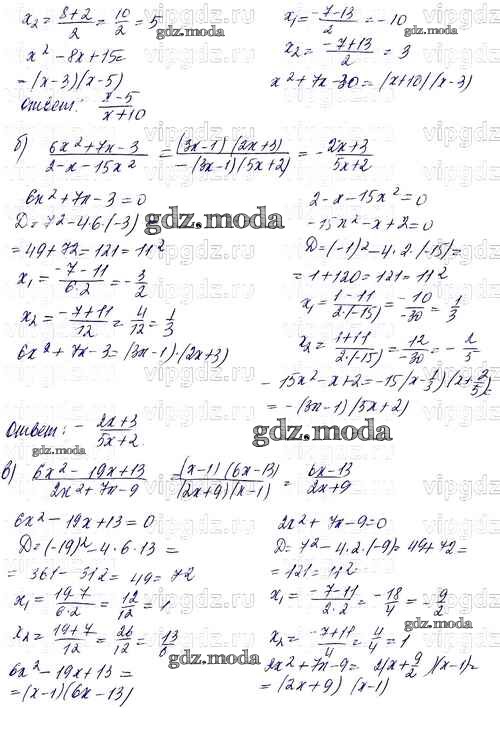 x₂ = (8+2)/2 = 10/2 = 5
x² - 8x + 15 =
= (x-3)(x-5)
Ответ: (x-5)/(x+10)
x₁ = (-7-13)/2 = -10
x₂ = (-7+13)/2 = 3
x² + 7x - 30 = (x+10)(x-3)
gdz.moda
б) (6x²+7x-3)/(2-x-15x²) = ((3x-1)(2x+3))/(-(3x-1)(5x+2)) = -(2x+3)/(5x+2)
6x² + 7x - 3 = 0
D = 7² - 4·6·(-3)
= 49 + 72 = 121 = 11²
x₁ = (-7-11)/(6·2) = -3/2
x₂ = (-7+11)/12 = 4/12 = 1/3
6x² + 7x - 3 = (3x-1)·(2x+3)
gdz.moda
2 - x - 15x² = 0
-15x² - x + 2 = 0
D = (-1)² - 4·2·(-15) =
= 1 + 120 = 121 = 11²
x₁ = (1-11)/(2·(-15)) = -10/-30 = 1/3
x₂ = (1+11)/(2·(-15)) = 12/-30 = -2/5
-15x² - x + 2 = -15(x-1/3)(x+2/5) =
= -(3x-1)(5x+2)
Ответ: -(2x+3)/(5x+2)
gdz.moda
gdz.moda
в) (6x²-19x+13)/(2x²+7x-9) = ((x-1)(6x-13))/((2x+9)(x-1)) = (6x-13)/(2x+9)
6x² - 19x + 13 = 0
D = (-19)² - 4·6·13 =
= 361 - 312 = 49 = 72
x₁ = (19-7)/(6·2) = 12/12 = 1
x₂ = (19+7)/12 = 26/12 = 13/6
6x² - 19x + 13 =
= (x-1)(6x-13)
2x² + 7x - 9 = 0
D = 7² - 4·2·(-9) = 49 + 72 =
= 121 = 11²
x₁ = (-7-11)/(2·2) = -18/4 = -9/2
x₂ = (-7+11)/4 = 4/4 = 1
2x² + 7x - 9 = 2(x+9/2)(x-1) =
= (2x+9)(x-1)
gdz.moda
gdz.moda
vipgdz.ru